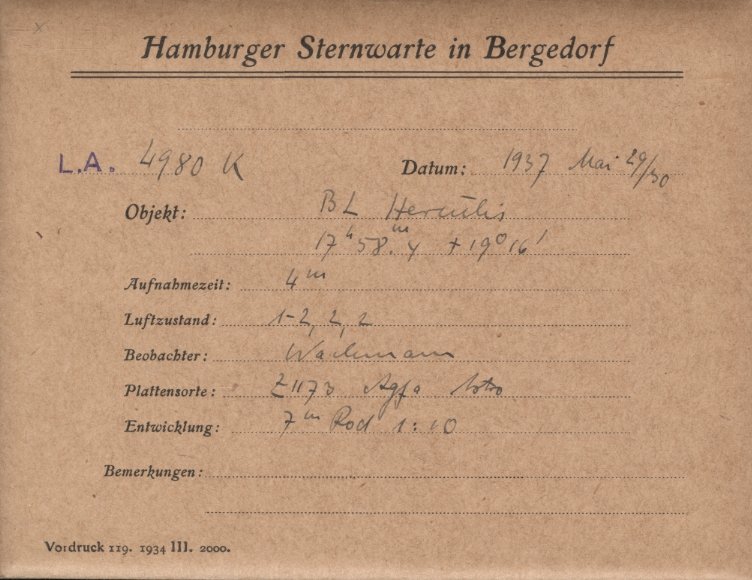 Hamburger Sternwarte in Bergedorf
L.A. 4980 K Datum: 1937 Mai 29/30
Objekt: BL Herculis
17ʰ58.ᵐ4 +19°16'
Aufnahmezeit: 4ᵐ
Luftzustand: 1-2, 2, 2
Beobachter: Wachmann
Plattensorte: Z1173 Agfa Astro
Entwicklung: 7ᵐ Rod 1:10
Bemerkungen:
Vordruck 119. 1934 III. 2000.